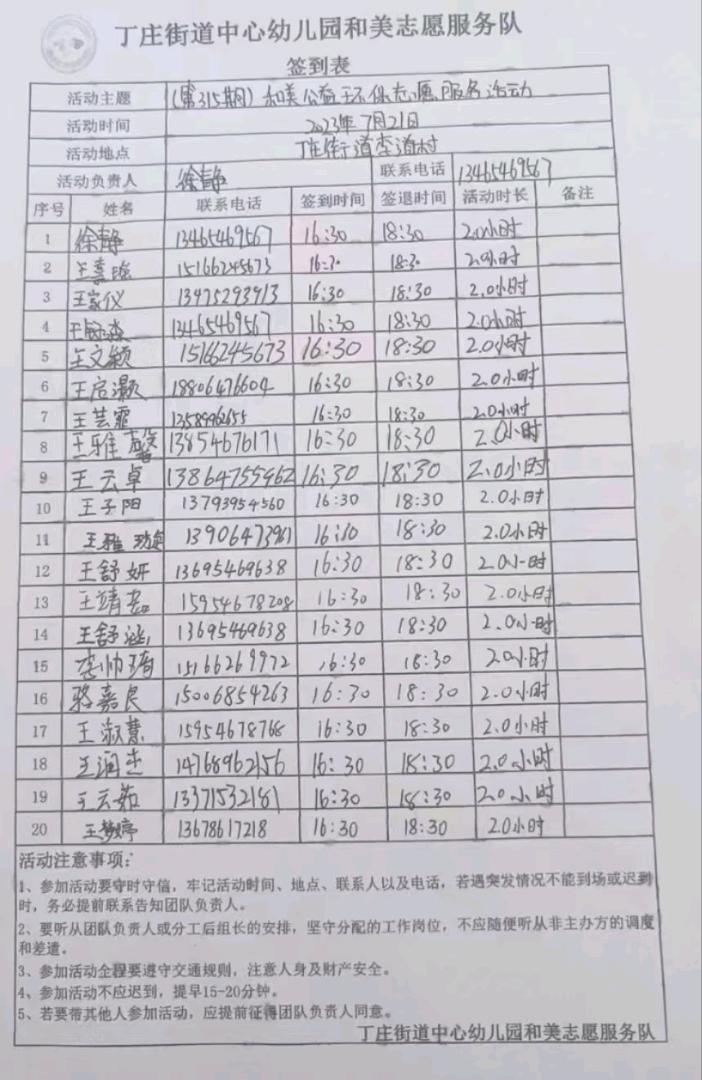 丁庄街道中心幼儿园和美志愿服务队
签到表
活动主题 (第315期) 和美公益环保志愿服务活动
活动时间 2023年7月21日
活动地点 丁庄街道李道村
活动负责人 徐静 联系电话 13465469567
序号 姓名 联系电话 签到时间 签退时间 活动时长 备注
1 徐静 13465469567 16:30 18:30 2.0小时
2 15166245673 16:30 18:30 2.0小时
3 王家仪 13475293913 16:30 18:30 2.0小时
4 13465469567 16:30 18:30 2.0小时
5 王文颖 15166245673 16:30 18:30 2.0小时
6 王启灏 18806476604 16:30 18:30 2.0小时
7 王芸霏 13589962655 16:30 18:30 2.0小时
8 王雅馨 13854676171 16:30 18:30 2.0小时
9 王云卓 13864755962 16:30 18:30 2.0小时
10 王子阳 13793954560 16:30 18:30 2.0小时
11 16:30 18:30 2.0小时
12 王舒妍 13695469638 16:30 18:30 2.0小时
13 15954678208 16:30 18:30 2.0小时
14 王舒涵 13695469638 16:30 18:30 2.0小时
15 李帅琦 15166269972 16:30 18:30 2.0小时
16 骆嘉良 15006854263 16:30 18:30 2.0小时
17 王淑慧 15954678768 16:30 18:30 2.0小时
18 王润杰 14768962156 16:30 18:30 2.0小时
19 王云茹 13371532181 16:30 18:30 2.0小时
20 王梦婷 13678617218 16:30 18:30 2.0小时
活动注意事项:
1、参加活动要守时守信，牢记活动时间、地点、联系人以及电话，若遇突发情况不能到场或迟到
时，务必提前联系告知团队负责人。
2、要听从团队负责人或分工后组长的安排，坚守分配的工作岗位，不应随便听从非主办方的调度
和差遣。
3、参加活动全程要遵守交通规则，注意人身及财产安全。
4、参加活动不应迟到，提早15-20分钟。
5、若要带其他人参加活动，应提前征得团队负责人同意。
丁庄街道中心幼儿园和美志愿服务队